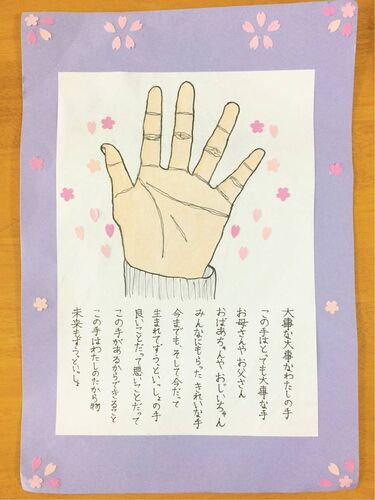 大事な大事なわたしの手
この手はとっても大事な手
お母さんやお父さん
おばあちゃんやおじいちゃん
みんなにもらったきれいな手
今までも、そして今だって
生まれてずっといっしょの手
良いことだって悪いことだって
この手があるからできること
この手はわたしのたから物
未来もずっといっしょ